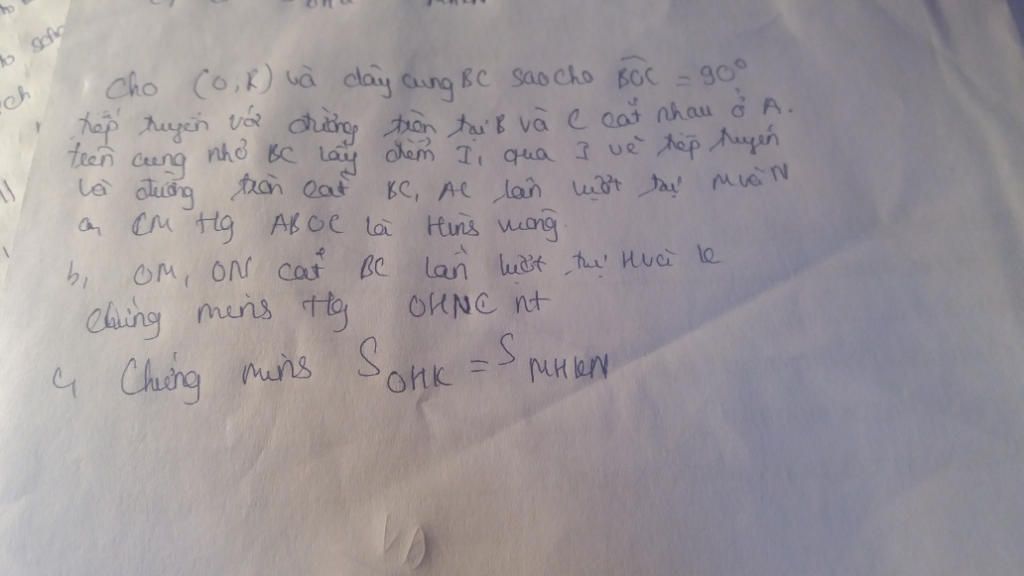 Cho (O,R) và dây cung BC sao cho BOC = 90°
tiếp tuyến với đường tròn tại B và C cắt nhau ở A.
trên cung nhỏ BC lấy điểm I, qua I vẽ tiếp tuyến
với đường tròn cắt BC, AC lần lượt tại M và N
a, CM tg ABOC là Hình vuông.
b, OM, ON cắt BC lần lượt tại H và K
chứng minh tg OHNC nt
c, Chứng minh S OHK = S MHKN